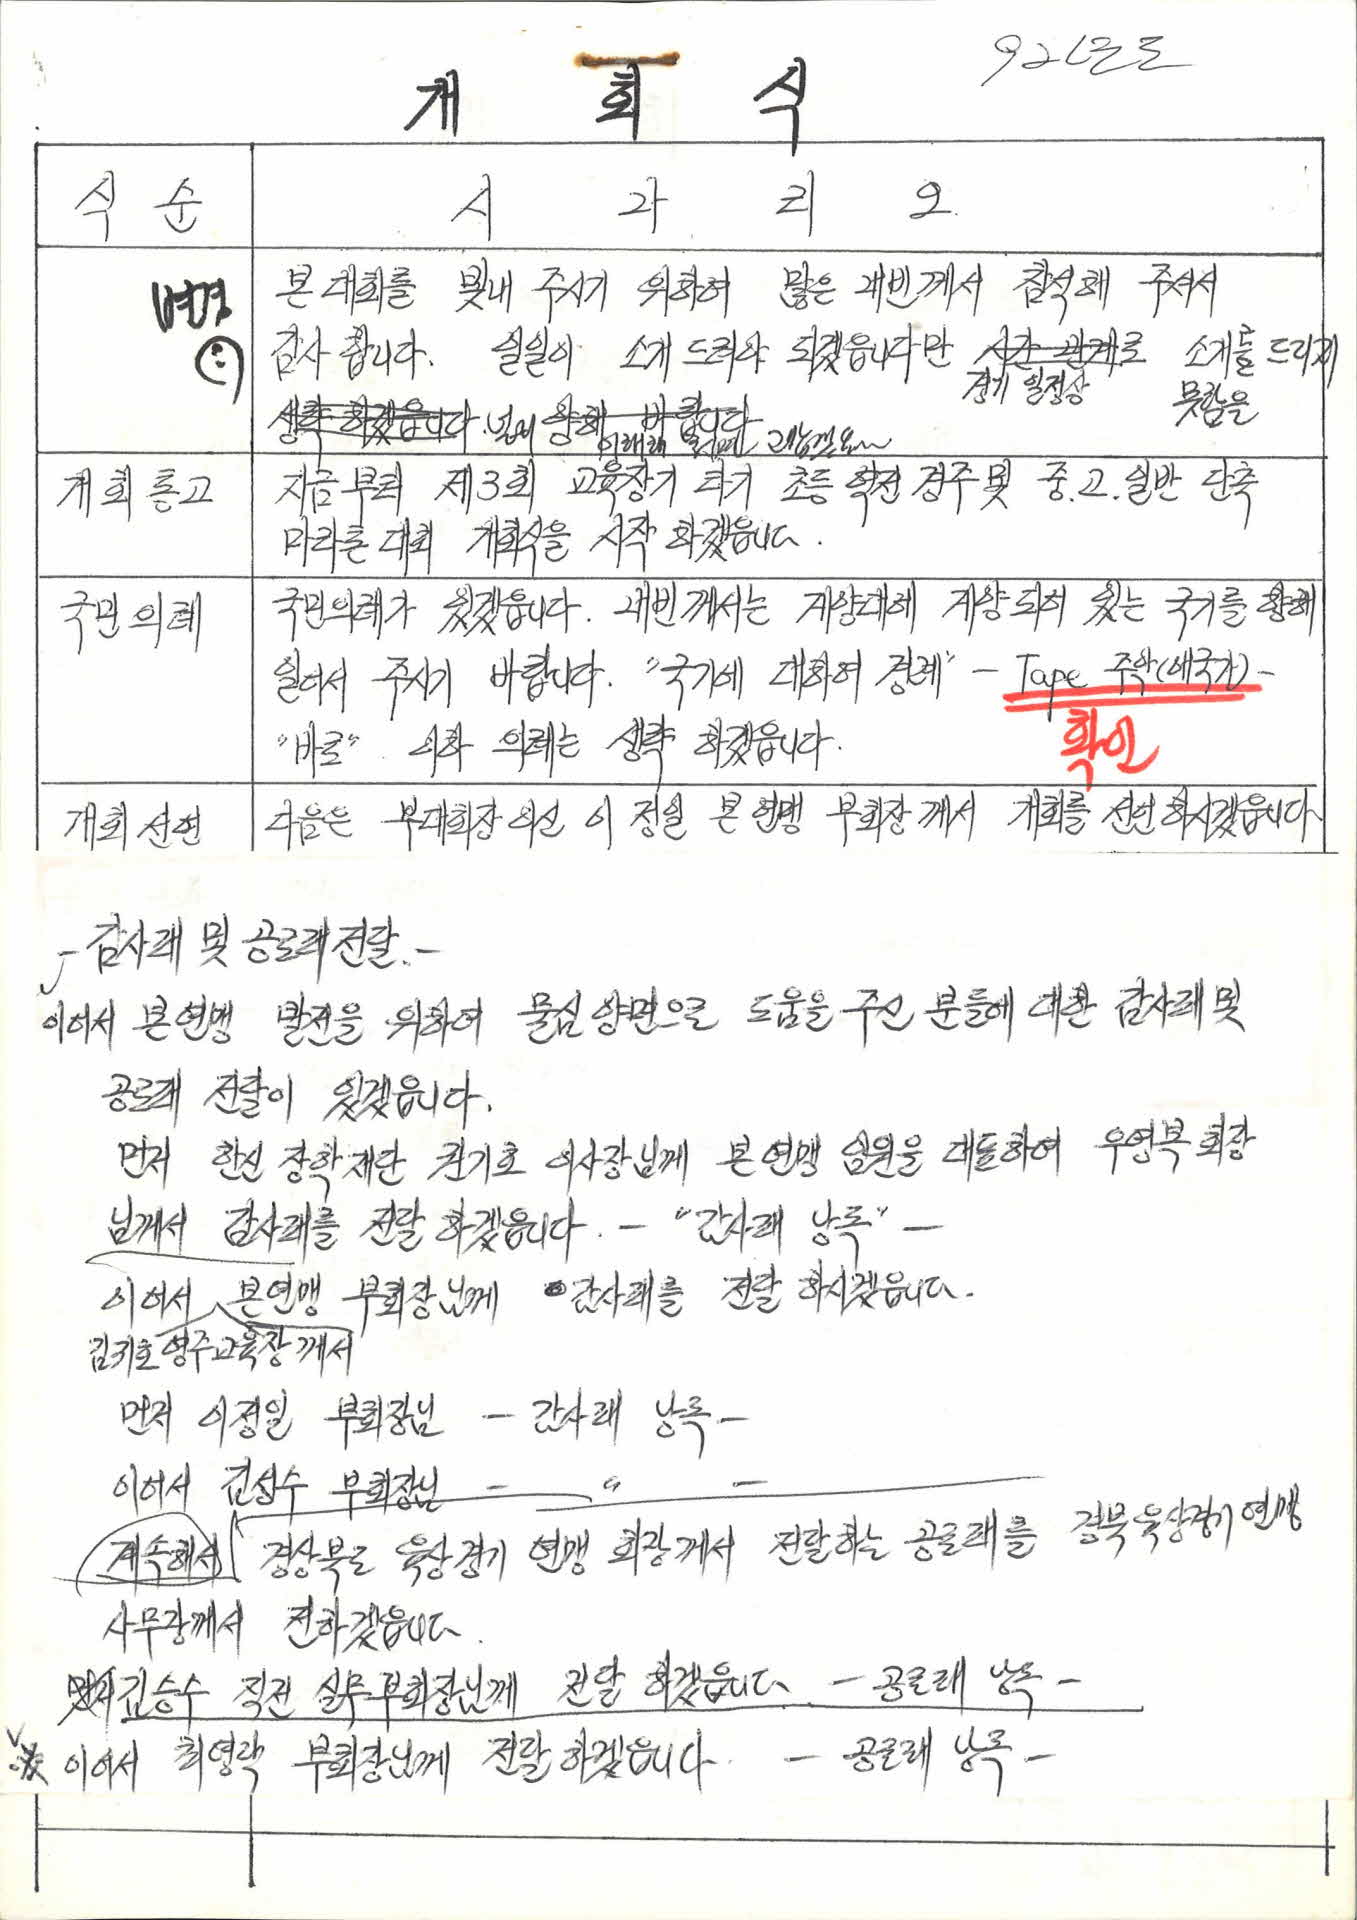 개 회 식
식 순
시 나 리 오
본 대회를 빛내 주시기 위하여 많은 내빈께서 참석해 주셔서
감사 합니다. 일일이 소개 드려야 되겠습니다만 시간 관계로 소개를 드리지
경기 일정상 못함을
생략 하겠습니다. 널리 양해 바랍니다
개회통고
지금부터 제3회 교육장기 타기 초등 학건 경주 및 중.고.일반 단축
마라톤 대회 개회식을 시작 하겠습니다.
국민의례
국민의례가 있겠습니다. 내빈께서는 게양대에 게양되어 있는 국기를 향해
일어서 주시기 바랍니다. "국기에 대하여 경례" - Tape 주악(애국가) -
확인
"바로" 이하 의례는 생략 하겠습니다.
개회선언
다음은 부대회장이신 이정일 본 연맹 부회장께서 개회를 선언하시겠습니다
- 감사패 및 공로패 전달. -
이어서 본연맹 발전을 위하여 물심 양면으로 도움을 주신 분들에 대한 감사패 및
공로패 전달이 있겠습니다.
먼저 한신 장학재단 권기호 이사장님께 본 연맹 임원을 대표하여 우영복 회장
님께서 감사패를 전달 하겠습니다. - "감사패 낭독" -
이어서 본연맹 부회장님께 감사패를 전달 하시겠습니다.
김기호 영주교육장께서
먼저 이정일 부회장님 - 감사패 낭독 -
이어서 김성수 부회장님 - " -
계속해서 경상북도 육상경기 연맹 회장께서 전달하는 공로패를 경북육상경기연맹
사무장께서 전하겠습니다.
먼저 김승수 직전 실무부회장님께 전달 하겠습니다 - 공로패 낭독 -
이어서 최영락 부회장님께 전달하겠습니다 - 공로패 낭독 -